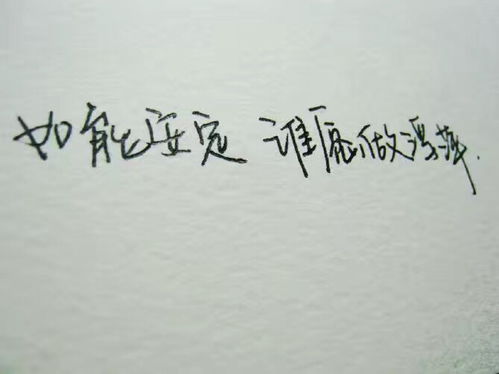 如能安定 谁愿做浮萍.